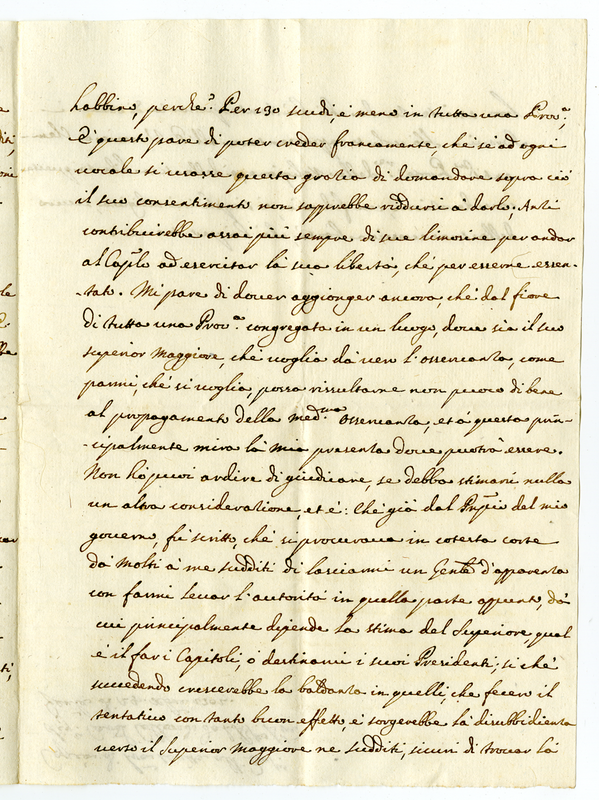 habbino, perche. Per 130 scudi, e meno in tutta una Prov.ª,
E questo pare di poter creder francamente che sè ad ogni
vocale si usasse questa gratia di domandare sopra ciò
il suo consentimento non sapprebbe riddursi à darlo; Anti
contribuirebbe assai più sempre di sue limosine per andar
al Cap.lo ad esercitar là sua libertà, chè per esserne essen-
-tato. Mi pare di dover aggionger ancora, chè dal fiore
di tutta una Prov.ª congregata in un luogo, dove sia il suo
superior Maggiore, che voglia dà ver l'osservanta, come
parmi, chè si voglia, possa rissultarne non puoco di bene
al propagamento della med.ma osservanta, et à questo prin-
-cipalmente mira là mia presenta dove puotrà essere.
Non hò puoi ardire di giudicare, se debba stimarsi nulla
un altra consideratione, et è: Chè già dal Prñ.io del mio
governo, fù scritto, chè si procurava in cotesta corte
dà molti à me sudditi di lasciarmi un Gen.le d'apparenta
con farmi levar l'autorità in quella parte appunto, dà
cui principalmente dipende là stima del Superiore, qual
è il far i Capitoli, ò destinarvi i suoi Presidenti; si chè
succedendo crescerebbe la baldanta in quelli, che fecero il
tentativo con tanto buon effetto, e sorgerebbe là disubbidienta
verso il Superior Maggiore ne sudditi, sicuri di trovar là